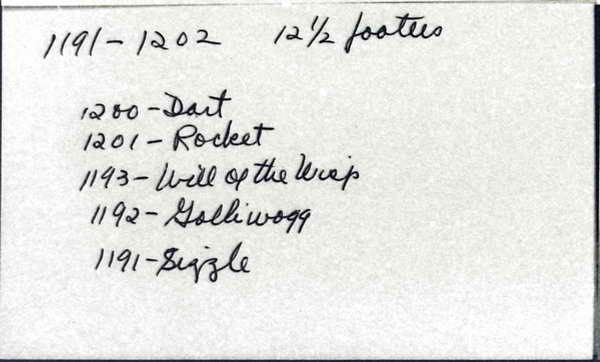 1191-1202 12 1/2 footers
1200-Dart
1201-Rocket
1193-Will of the Wisp
1192-Golliwogg
1191-Sizzle